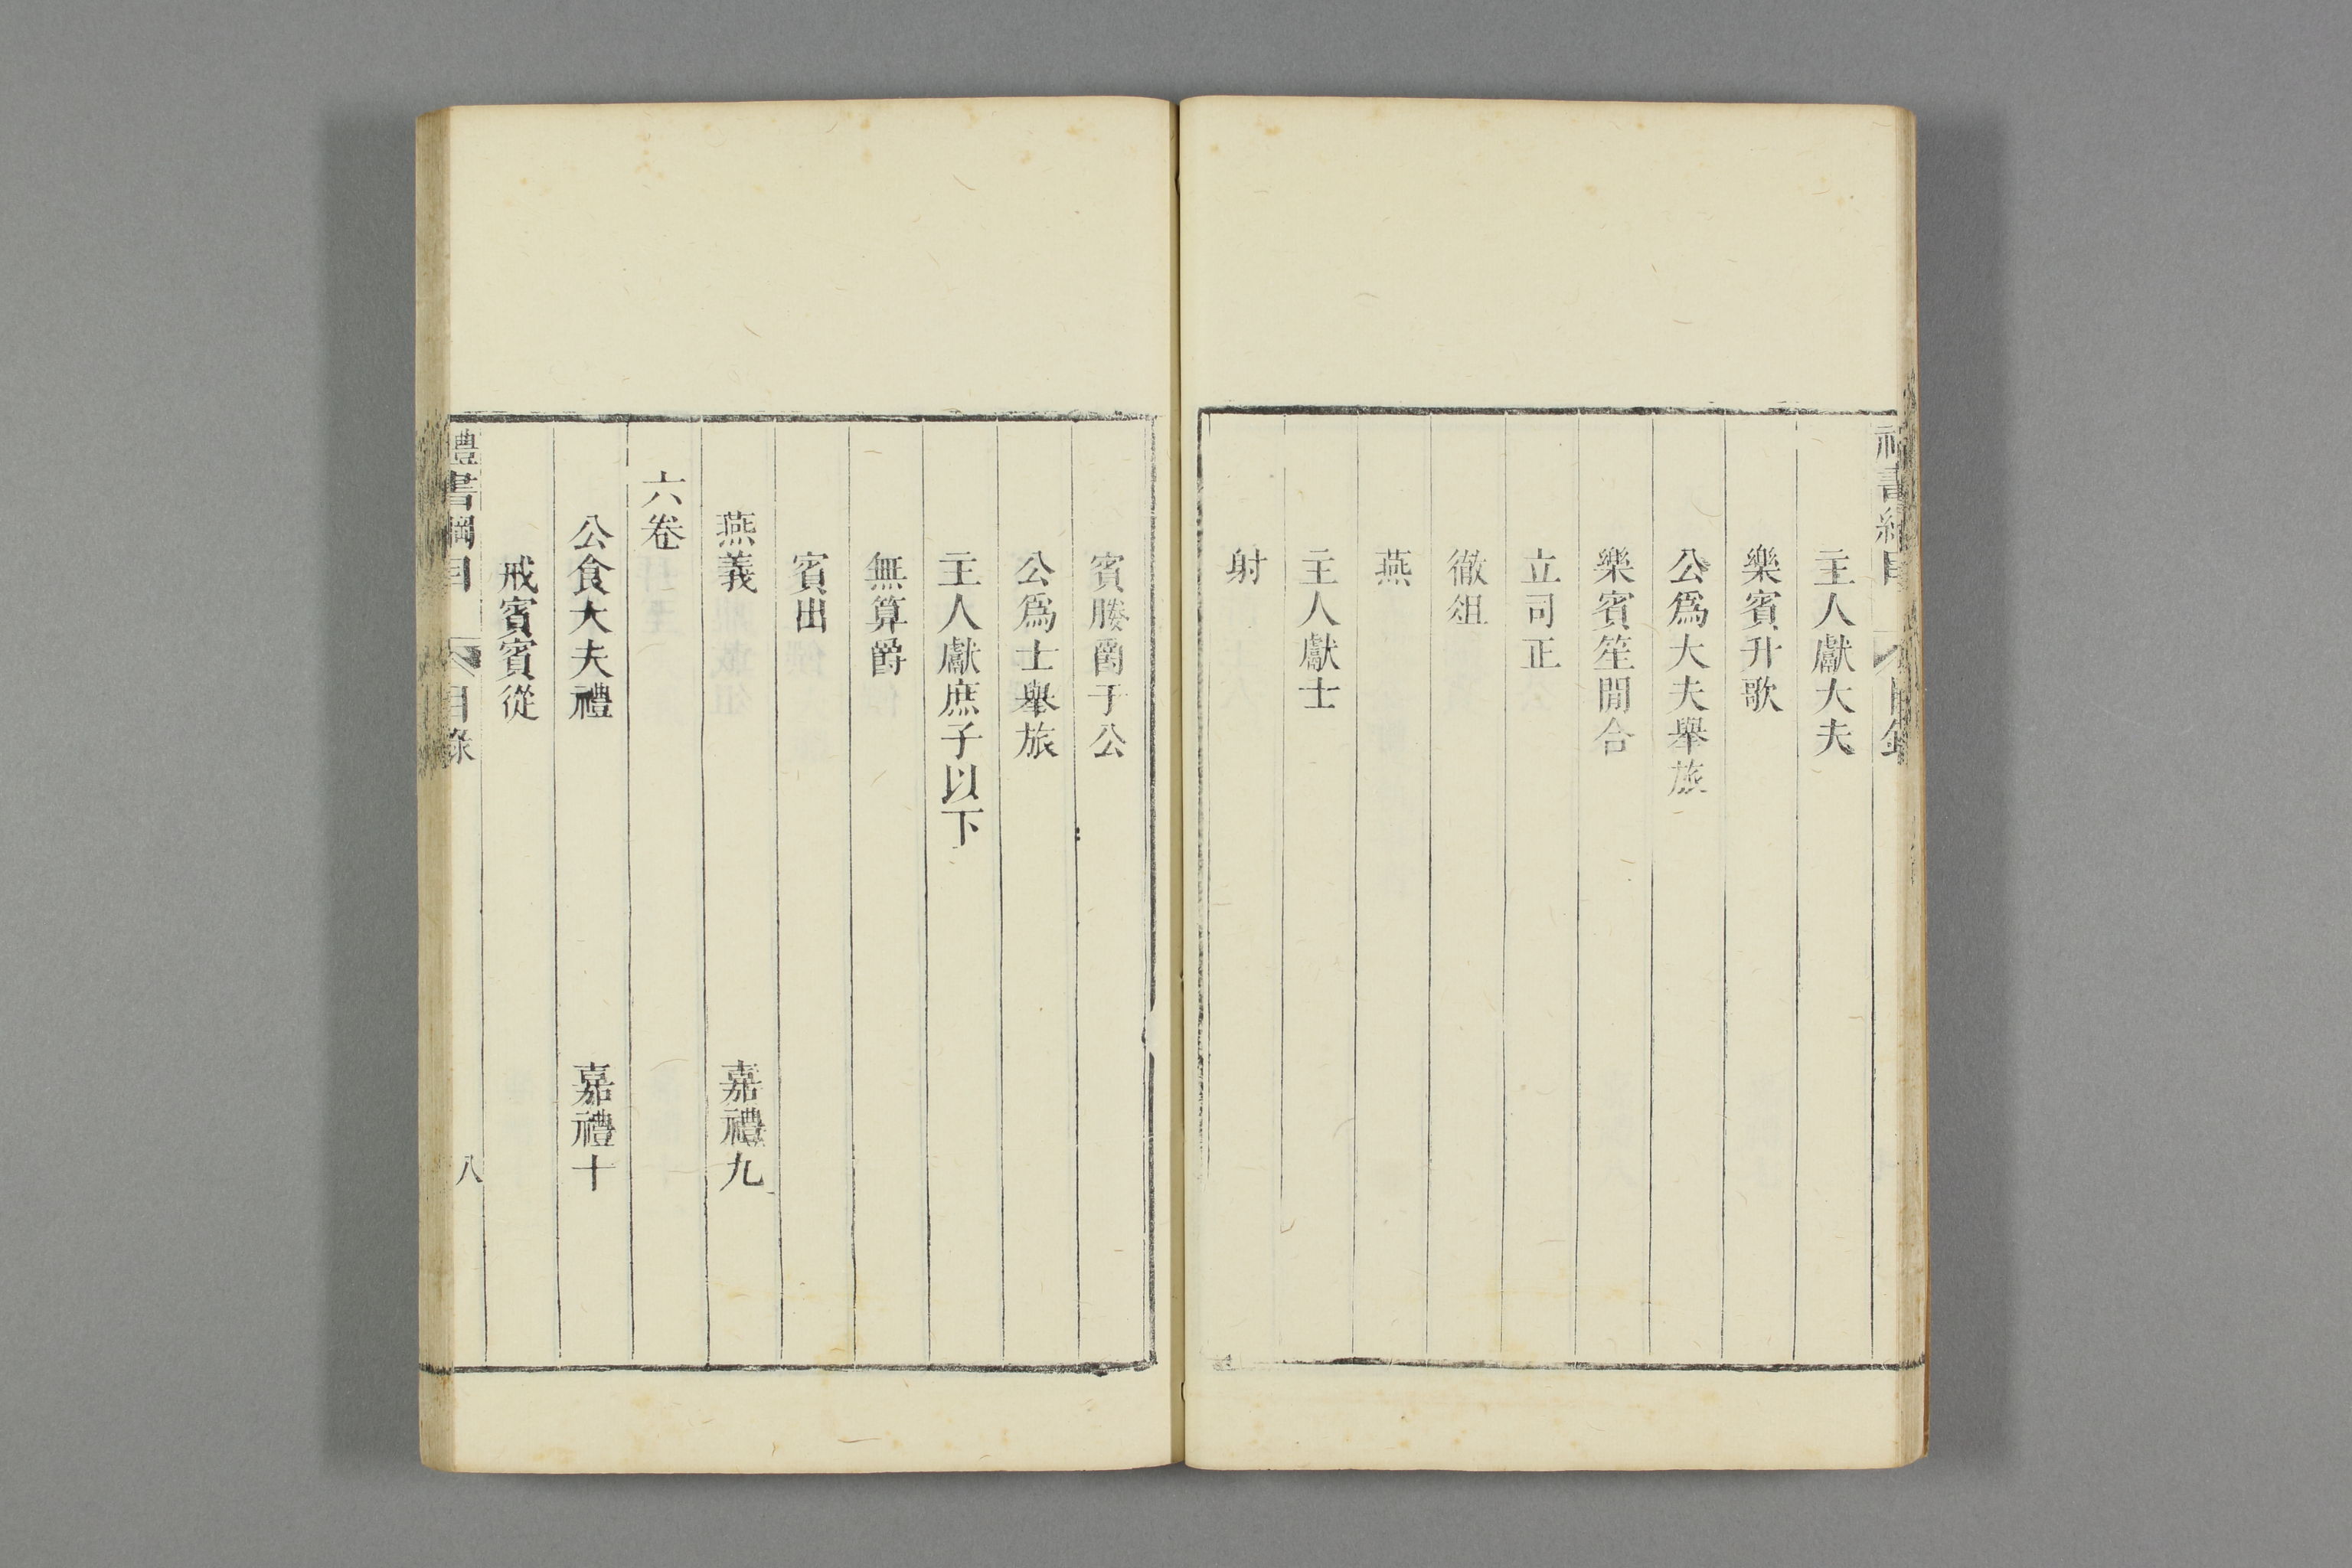 主人獻大夫
樂賓升歌
公爲大夫舉旅
樂賓笙閒合
立司正
徹俎
燕
主人獻士
射
賓媵爵于公
公爲士舉旅
主人獻庶子以下
無算爵
賓出
燕義 嘉禮九
六卷
公食大夫禮 嘉禮十
戒賓賓從
禮書綱目 目錄 八